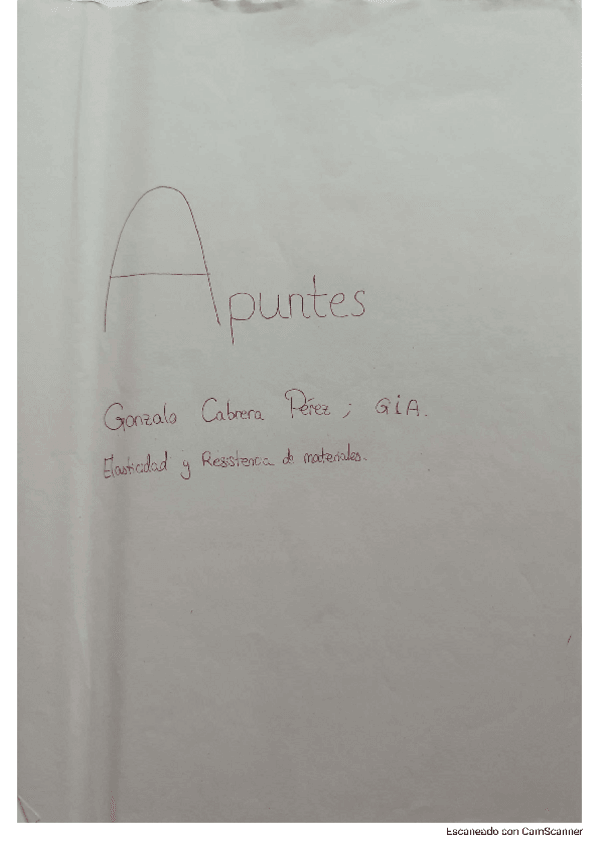 Apuntes
Gonzalo Cabrera Pérez; GIA.
Elasticidad y Resistencia de materiales.
Escaneado con CamScanner